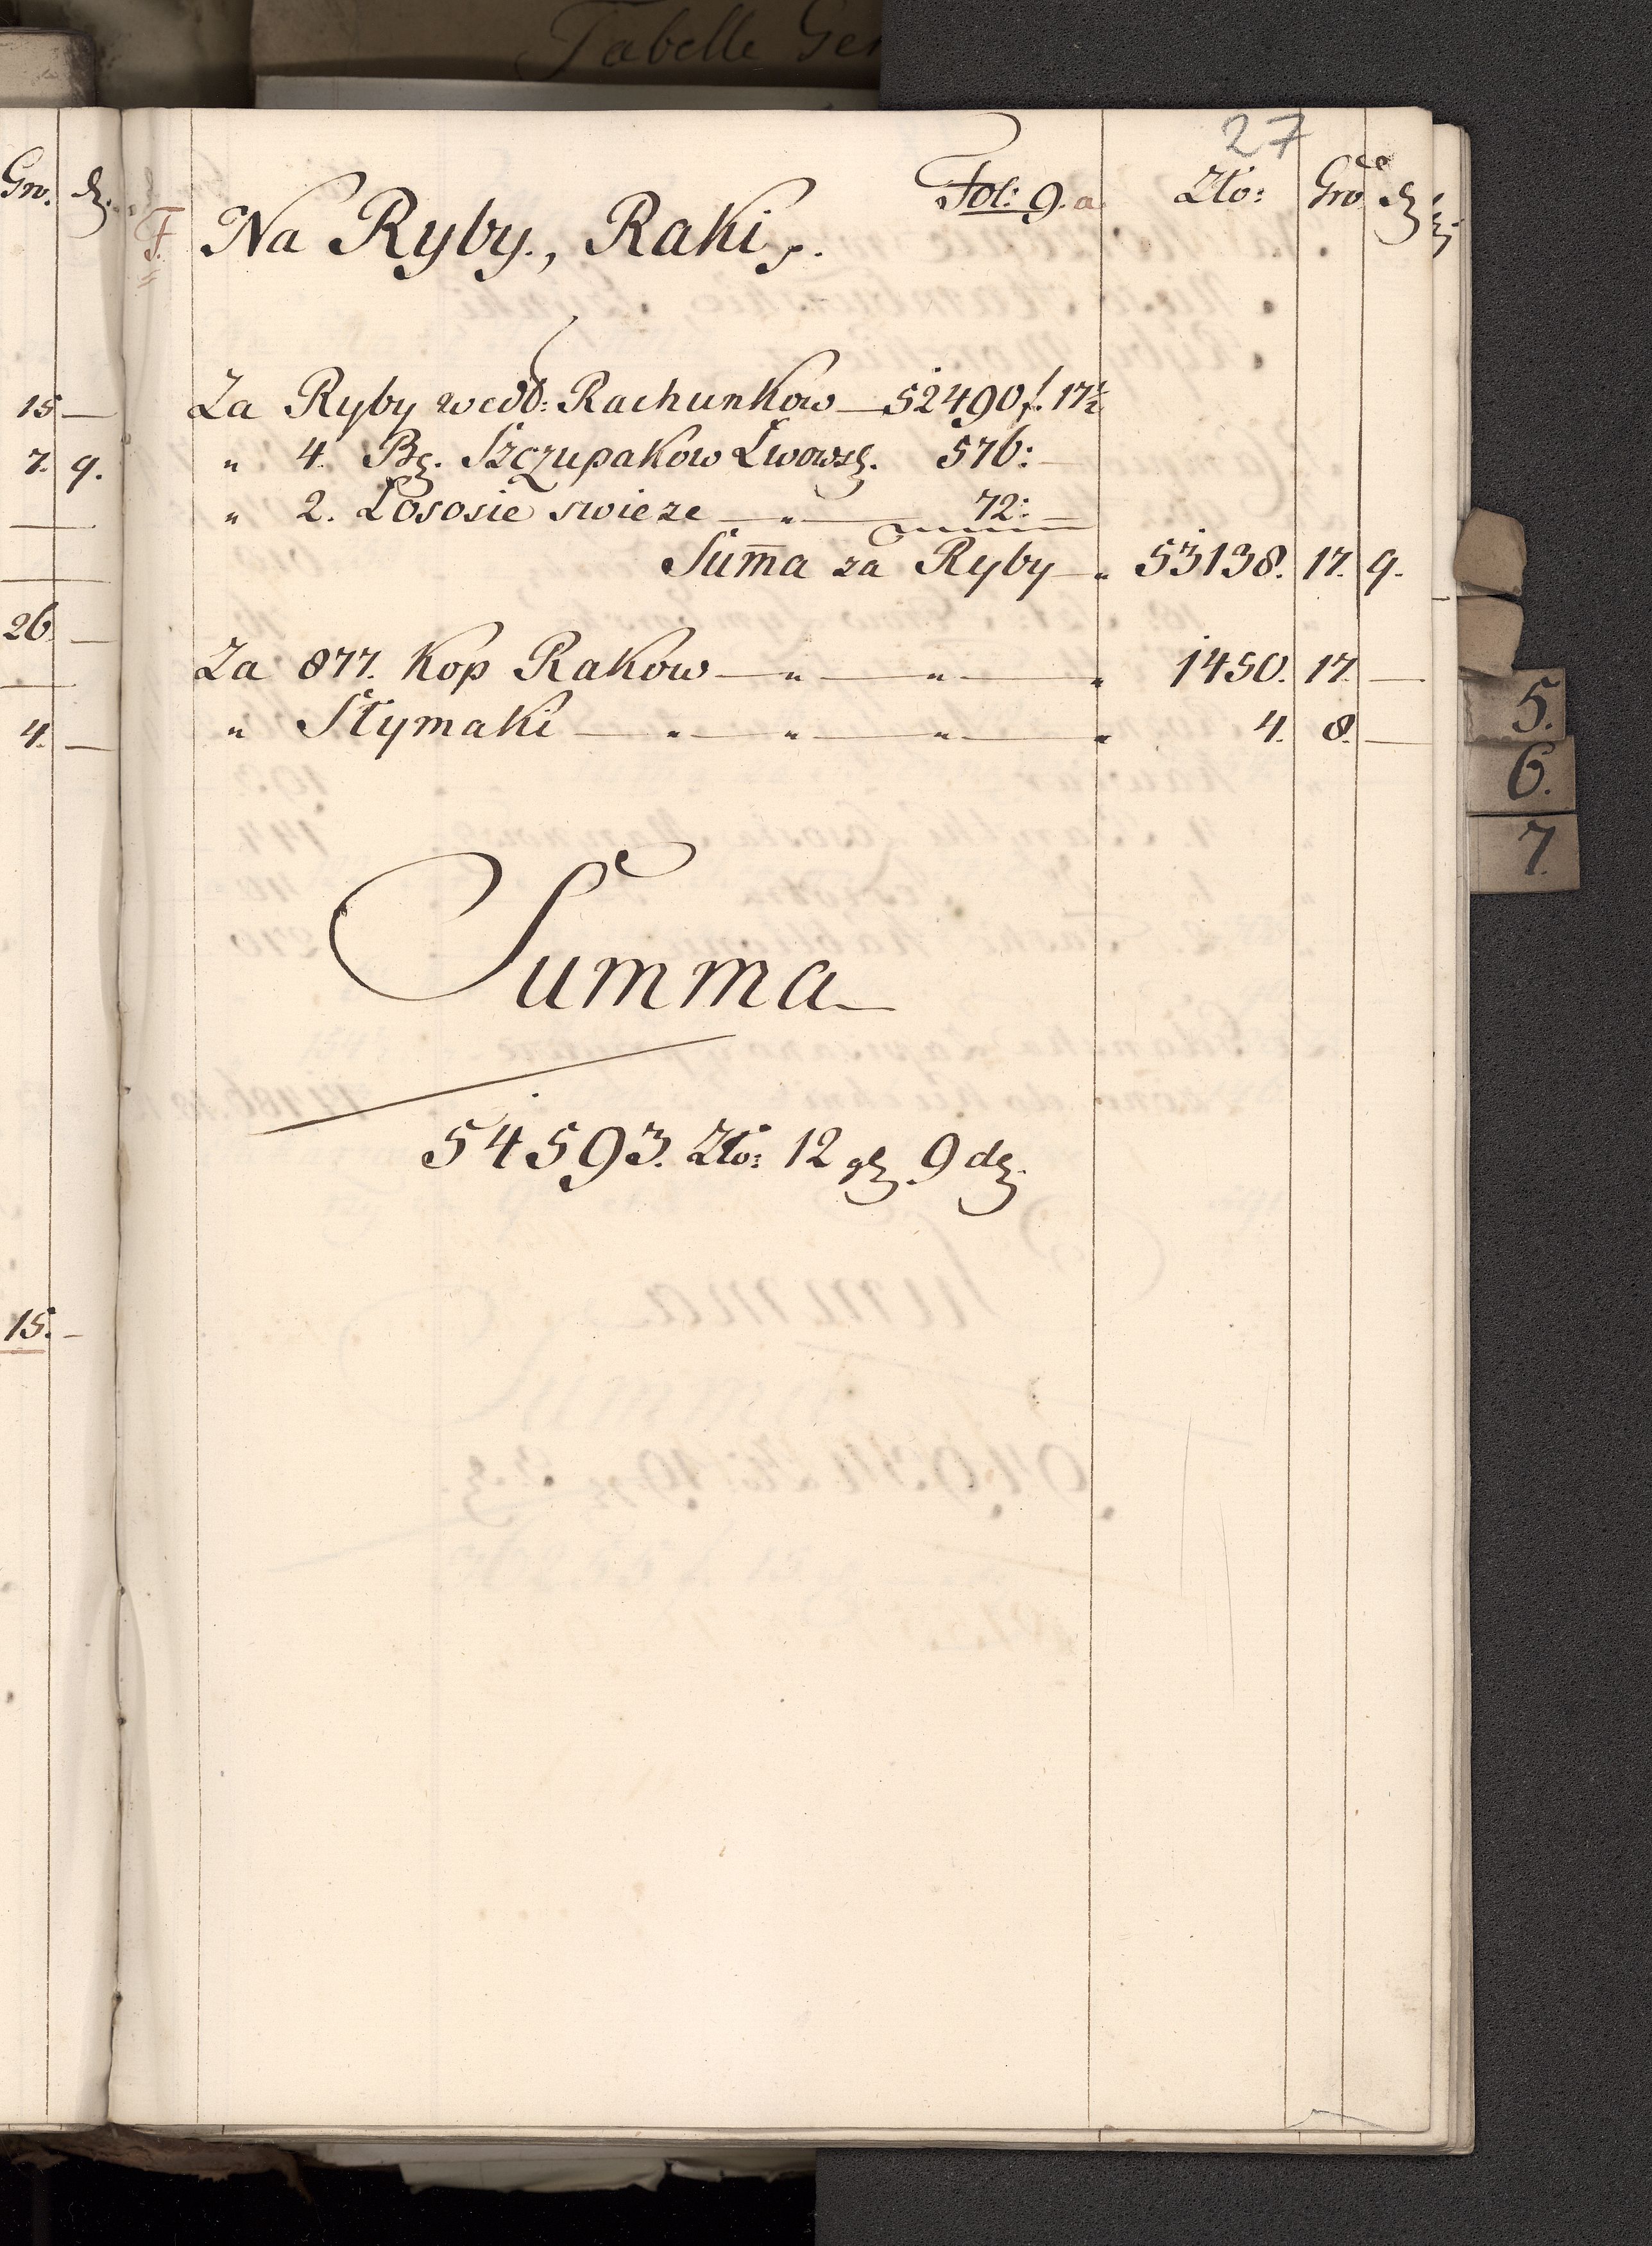 Tabelle Gen
27
Gro. dz.
Fol: 9. a Zło: Gro dz
F. Na Ryby., Raki p.
15 —
Za Ryby wedł: Rachunkow — 52490 f. 17½
7. 9.
" 4. Bę. Szczupakow Lwowsz. 576: —
" 2. Łososie swieze — " — 72: —
Sum̄a za Ryby — " 53138. 17. 9.
26 —
Za 877. Kop Rakow — " — " — " 1450. 17. —
4. —
" Slymaki — " — " — " — " 4. 8. —
5.
6.
7.
Summa
54593. Zło: 12 gz. 9 dz.
15. —